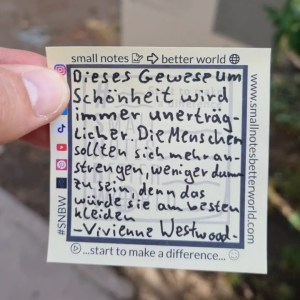 small notes ⇨ better world
Dieses Gewese um
Schönheit wird
immer unerträg-
licher. Die Menschen
sollten sich mehr an-
strengen, weniger dumm
zu sein, denn das
würde sie am besten
kleiden
-Vivienne Westwood-
...start to make a difference...
#SNBW
www.smallnotesbetterworld.com